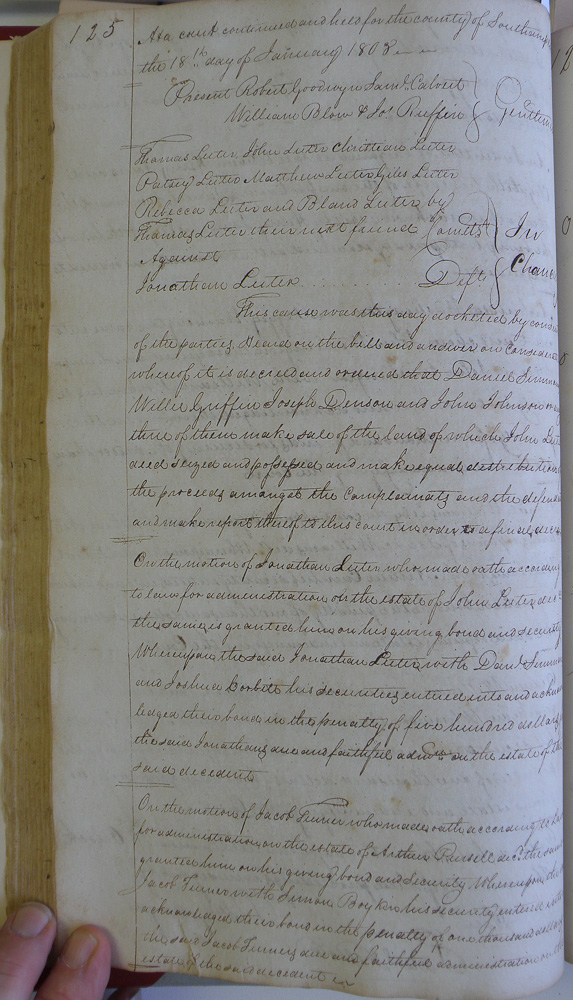 125
At a court continued and held for the county of Southamp
the 18th day of January 1808
Present Robert Goodwyn Saml. Calvert
William Blow & Jos. Ruffin } Gentlemen
Thomas Luter, John Luter Christian Luter
Patsey Luter Matthew Luter Giles Luter
Rebecca Luter and Bland Luter by
Thomas Luter their next friend Complts
Against } In Chanc
Jonathan Luter Deft
This cause was this day docketed by cons
of the parties heard on the bill and answer on considerat
whereof it is decreed and ordered that Daniel Simmon
Willie Griffin Joseph Denson and John Johnson or any
three of them make sale of the land of which John Lut
died seized and possessed and make equal distribution
the proceeds amongst the complainants and the defend
and make report thereof to this court in order to a final decre
On the motion of Jonathan Luter who made oath according
to law for administration on the estate of John Luter decd
the same is granted him on his giving bond and security
Whereupon the said Jonathan Luter with Danl. Simmon
and Joshua Corbitt his securities entered into and acknow
ledged their bond in the penalty of five hundred dollars
the said Jonathans due and faithful admn. on the estate of the
said decedent
On the motion of Jacob Turner who made oath according to law
for administration on the estate of Arthur Pursell decd the same
granted him on his giving bond and security Whereupon the
Jacob Turner with Simon Boykin his security entered into
acknowledged their bond in the penalty of one thousand dollars
the said Jacob Turners due and faithful administration on the
estate of the said decedent